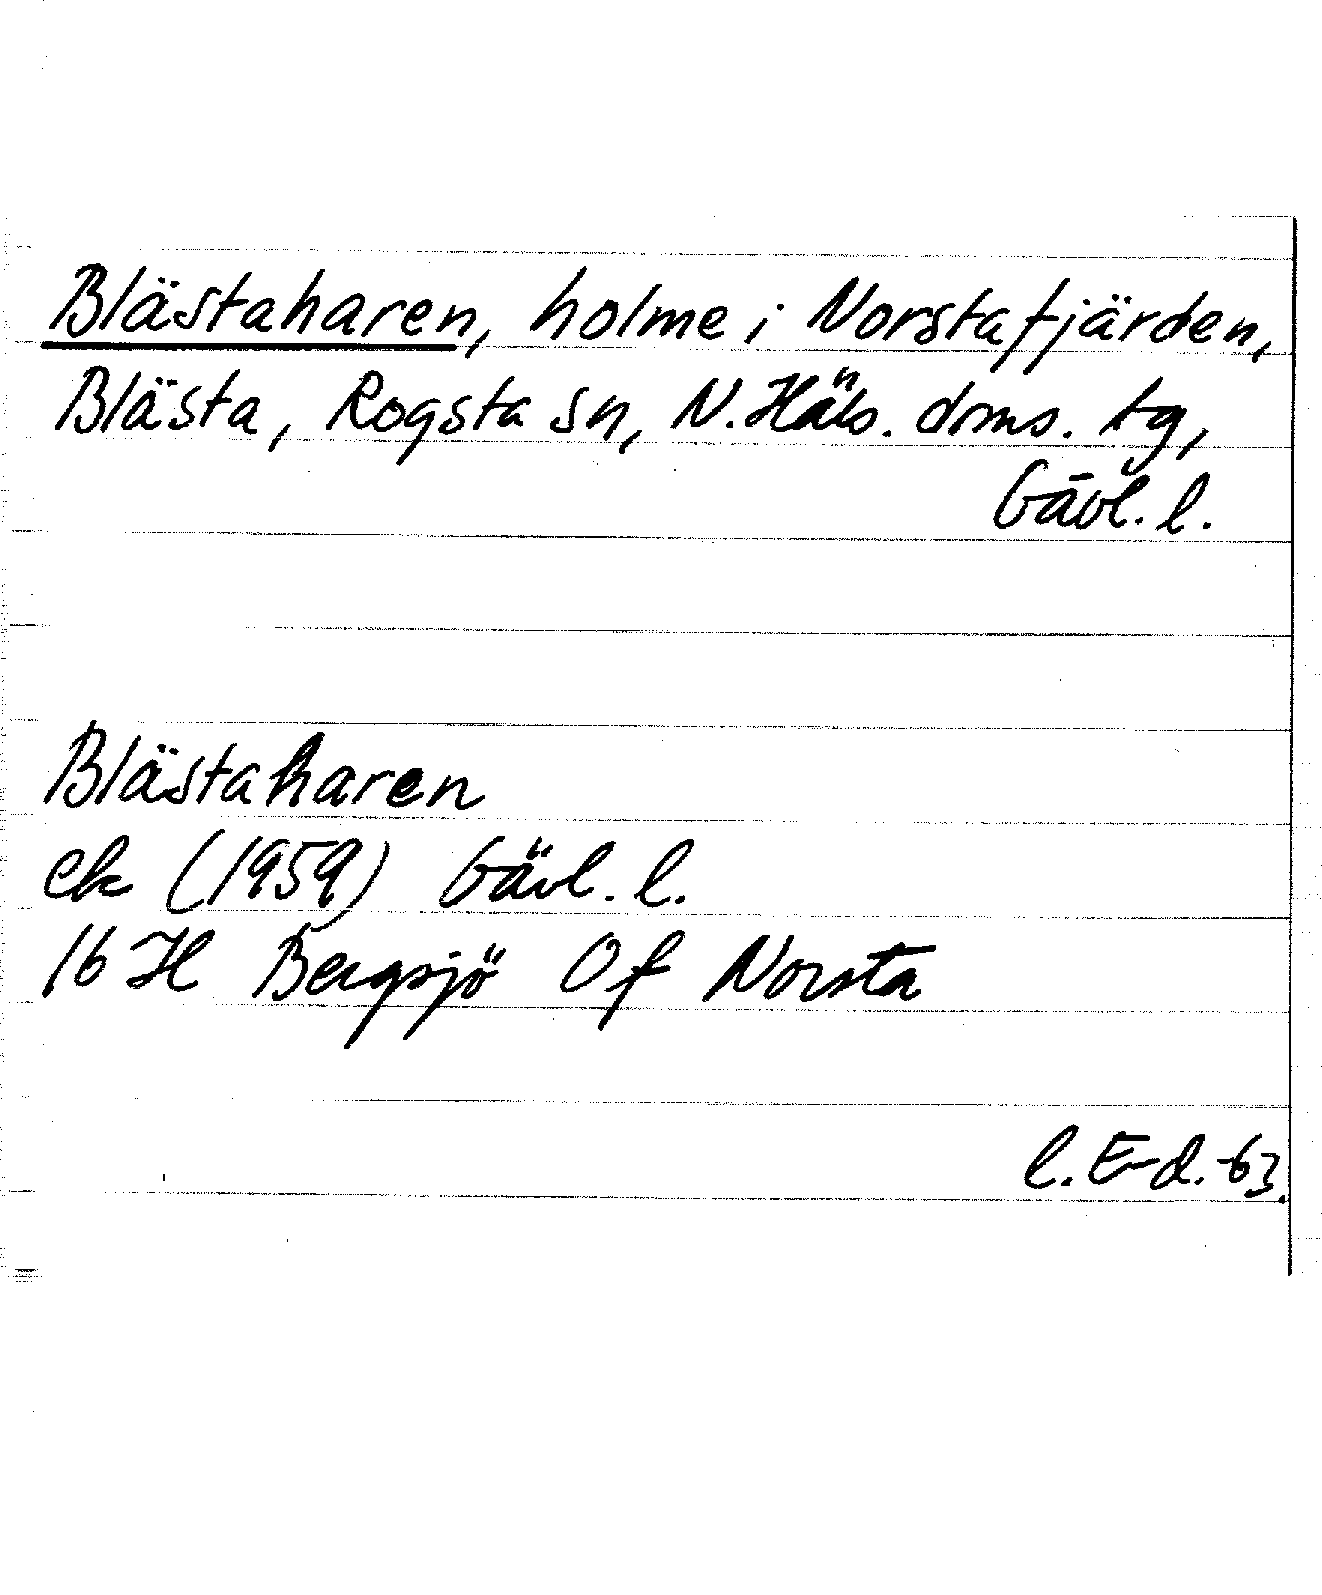 Blästaharen, holme i Norstafjärden,
Blästa, Rogsta sn, N. Häls. doms. tg,
Gävl. l.
Blästaharen
ek (1959) Gävl. l.
16 H Bergsjö Of Norsta
l. E-d. -63.